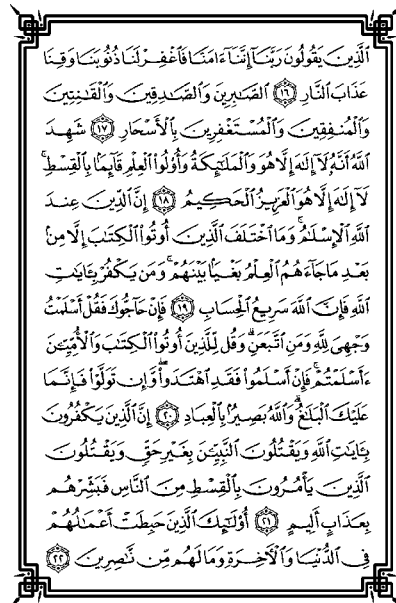 ٱلَّذِينَ يَقُولُونَ رَبَّنَآ إِنَّنَآ ءَامَنَّا فَٱغْفِرْ لَنَا ذُنُوبَنَا وَقِنَا
عَذَابَ ٱلنَّارِ ١٦ ٱلصَّـٰبِرِينَ وَٱلصَّـٰدِقِينَ وَٱلْقَـٰنِتِينَ
وَٱلْمُنفِقِينَ وَٱلْمُسْتَغْفِرِينَ بِٱلْأَسْحَارِ ١٧ شَهِدَ
ٱللَّهُ أَنَّهُۥ لَآ إِلَـٰهَ إِلَّا هُوَ وَٱلْمَلَـٰٓئِكَةُ وَأُو۟لُوا۟ ٱلْعِلْمِ قَآئِمًۢا بِٱلْقِسْطِ ۚ
لَآ إِلَـٰهَ إِلَّا هُوَ ٱلْعَزِيزُ ٱلْحَكِيمُ ١٨ إِنَّ ٱلدِّينَ عِندَ
ٱللَّهِ ٱلْإِسْلَـٰمُ ۗ وَمَا ٱخْتَلَفَ ٱلَّذِينَ أُوتُوا۟ ٱلْكِتَـٰبَ إِلَّا مِنۢ
بَعْدِ مَا جَآءَهُمُ ٱلْعِلْمُ بَغْيًۢا بَيْنَهُمْ ۗ وَمَن يَكْفُرْ بِـَٔايَـٰتِ
ٱللَّهِ فَإِنَّ ٱللَّهَ سَرِيعُ ٱلْحِسَابِ ١٩ فَإِنْ حَآجُّوكَ فَقُلْ أَسْلَمْتُ
وَجْهِىَ لِلَّهِ وَمَنِ ٱتَّبَعَنِ ۗ وَقُل لِّلَّذِينَ أُوتُوا۟ ٱلْكِتَـٰبَ وَٱلْأُمِّيِّـۧنَ
ءَأَسْلَمْتُمْ ۚ فَإِنْ أَسْلَمُوا۟ فَقَدِ ٱهْتَدَوا۟ ۖ وَّإِن تَوَلَّوْا۟ فَإِنَّمَا
عَلَيْكَ ٱلْبَلَـٰغُ ۗ وَٱللَّهُ بَصِيرٌۢ بِٱلْعِبَادِ ٢٠ إِنَّ ٱلَّذِينَ يَكْفُرُونَ
بِـَٔايَـٰتِ ٱللَّهِ وَيَقْتُلُونَ ٱلنَّبِيِّـۧنَ بِغَيْرِ حَقٍّ وَيَقْتُلُونَ
ٱلَّذِينَ يَأْمُرُونَ بِٱلْقِسْطِ مِنَ ٱلنَّاسِ فَبَشِّرْهُم
بِعَذَابٍ أَلِيمٍ ٢١ أُو۟لَـٰٓئِكَ ٱلَّذِينَ حَبِطَتْ أَعْمَـٰلُهُمْ
فِى ٱلدُّنْيَا وَٱلْـَٔاخِرَةِ وَمَا لَهُم مِّن نَّـٰصِرِينَ ٢٢